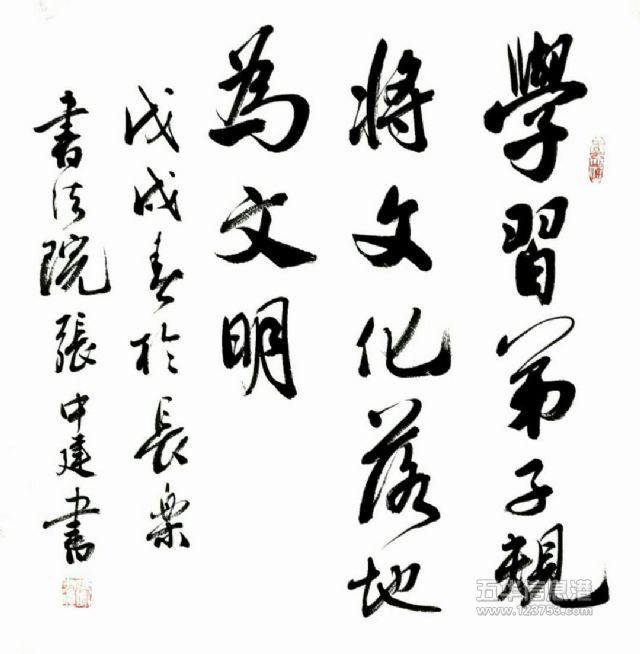 學習弟子規
將文化落地
為文明
戊戌春於長樂
書法院張中建書
www.123753.com